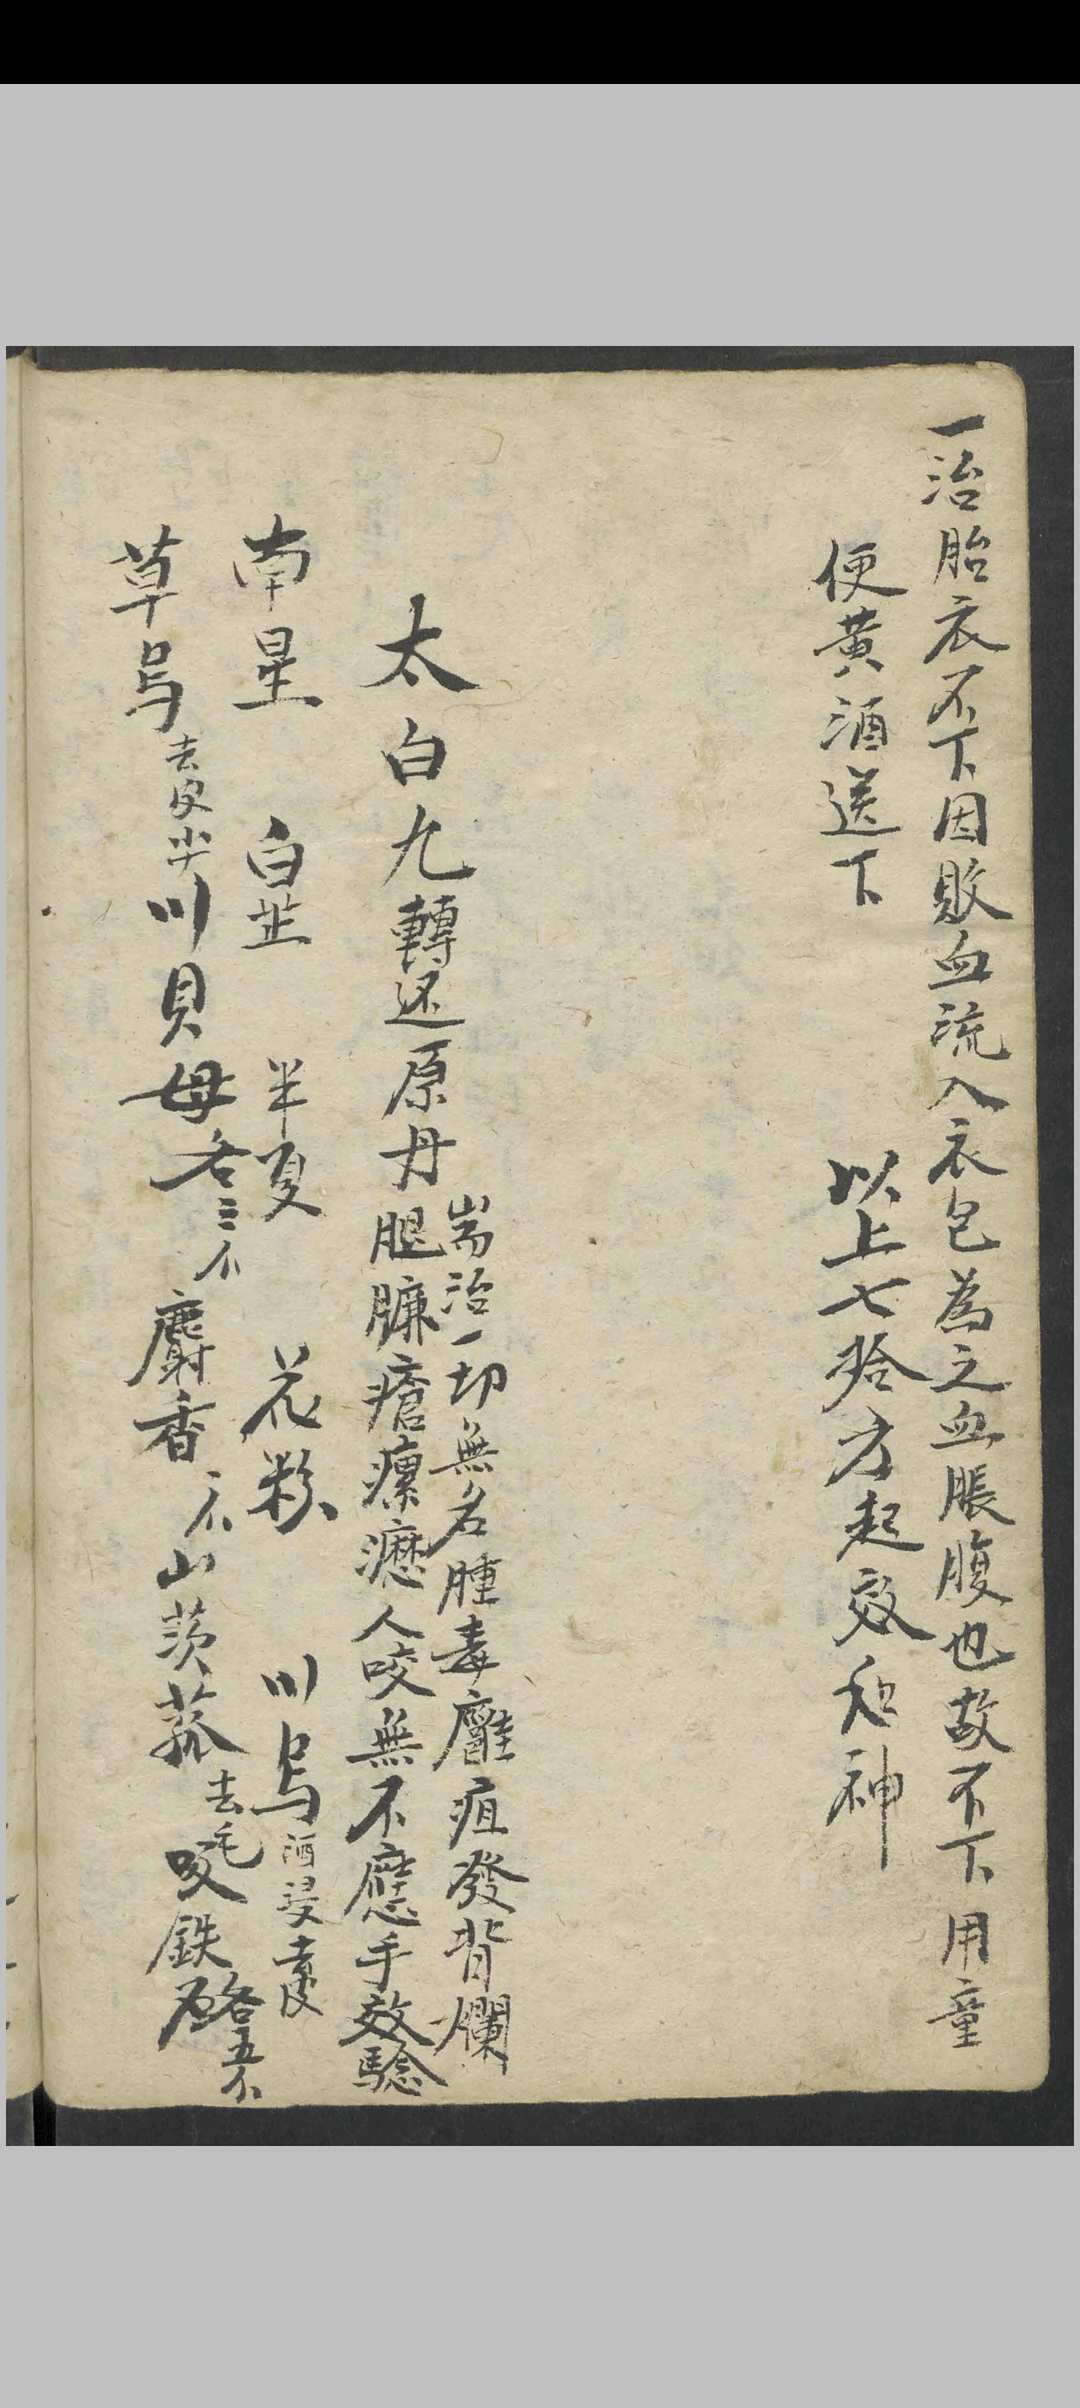 一治胎衣不下因敗血流入衣包為之血脹腹也故不下用童
便黃酒送下
以上七拾方起效如神
太白九轉还原丹
耑治一切無名腫毒癰疽發背爛
腿臁瘡瘰瀝人咬無不應手效驗
南星 白芷 半夏 花粉 川烏酒浸去皮
草烏去皮尖川貝母各三不 麝香二不 山茨菰去毛吸鉄石各五不